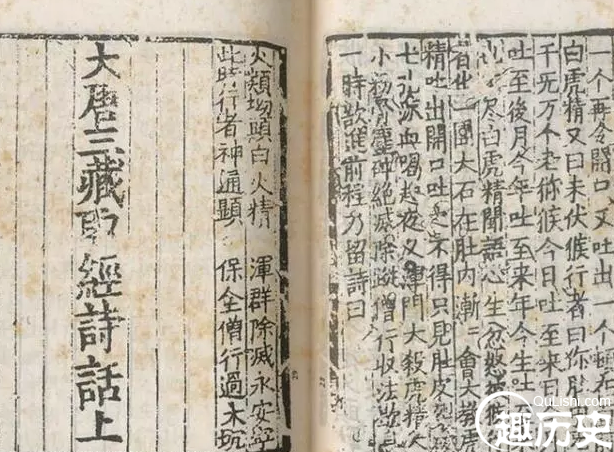 一个再令開口又吐出一个
白虎精又曰未伏猴行者曰你肚
千无万个老猕猴今日吐至来日
吐至後月今年吐至来年今生吐
尽白虎精聞語心生忿怒被猴
者化一團大石在肚内漸二會大教虎
精吐出開口吐之不得只見肚皮
七孔流血喝起夜叉渾門大殺虎精大
小粉骨塵碎絶滅除蹤僧行收法歇
一時欲進前程乃留詩曰
火類坳頭白火精 渾群除滅永安寧
此時行者神通顯 保全僧行過大坑
大唐三藏取經詩話上
QuLishi.com
趣历史